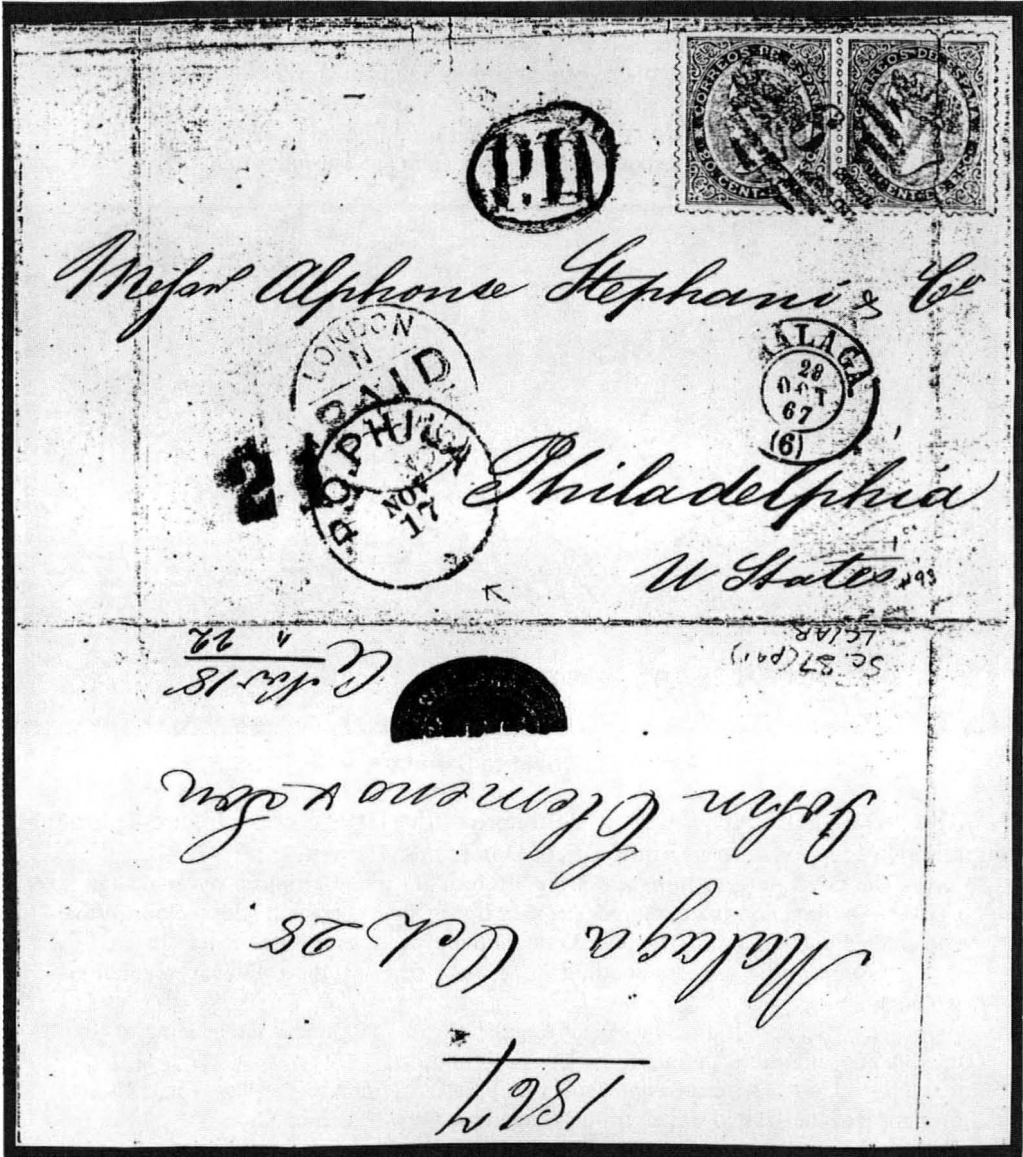 CORREOS DE ESPAÑA
CORREOS DE ESPAÑA
20 CENT. DE ESC
20 CENT. DE ESC
P.D
Messrs Alphonse Stephani & Co
LONDON
N
PAID
MALAGA
28
OCT
67
(6)
2
P.O. PHILA
NOV
17
Philadelphia
U States
1
#93
Sc. 87 (pair)
Nov 18
" 22
John Clemens & Son
Malaga Oct 28
1867